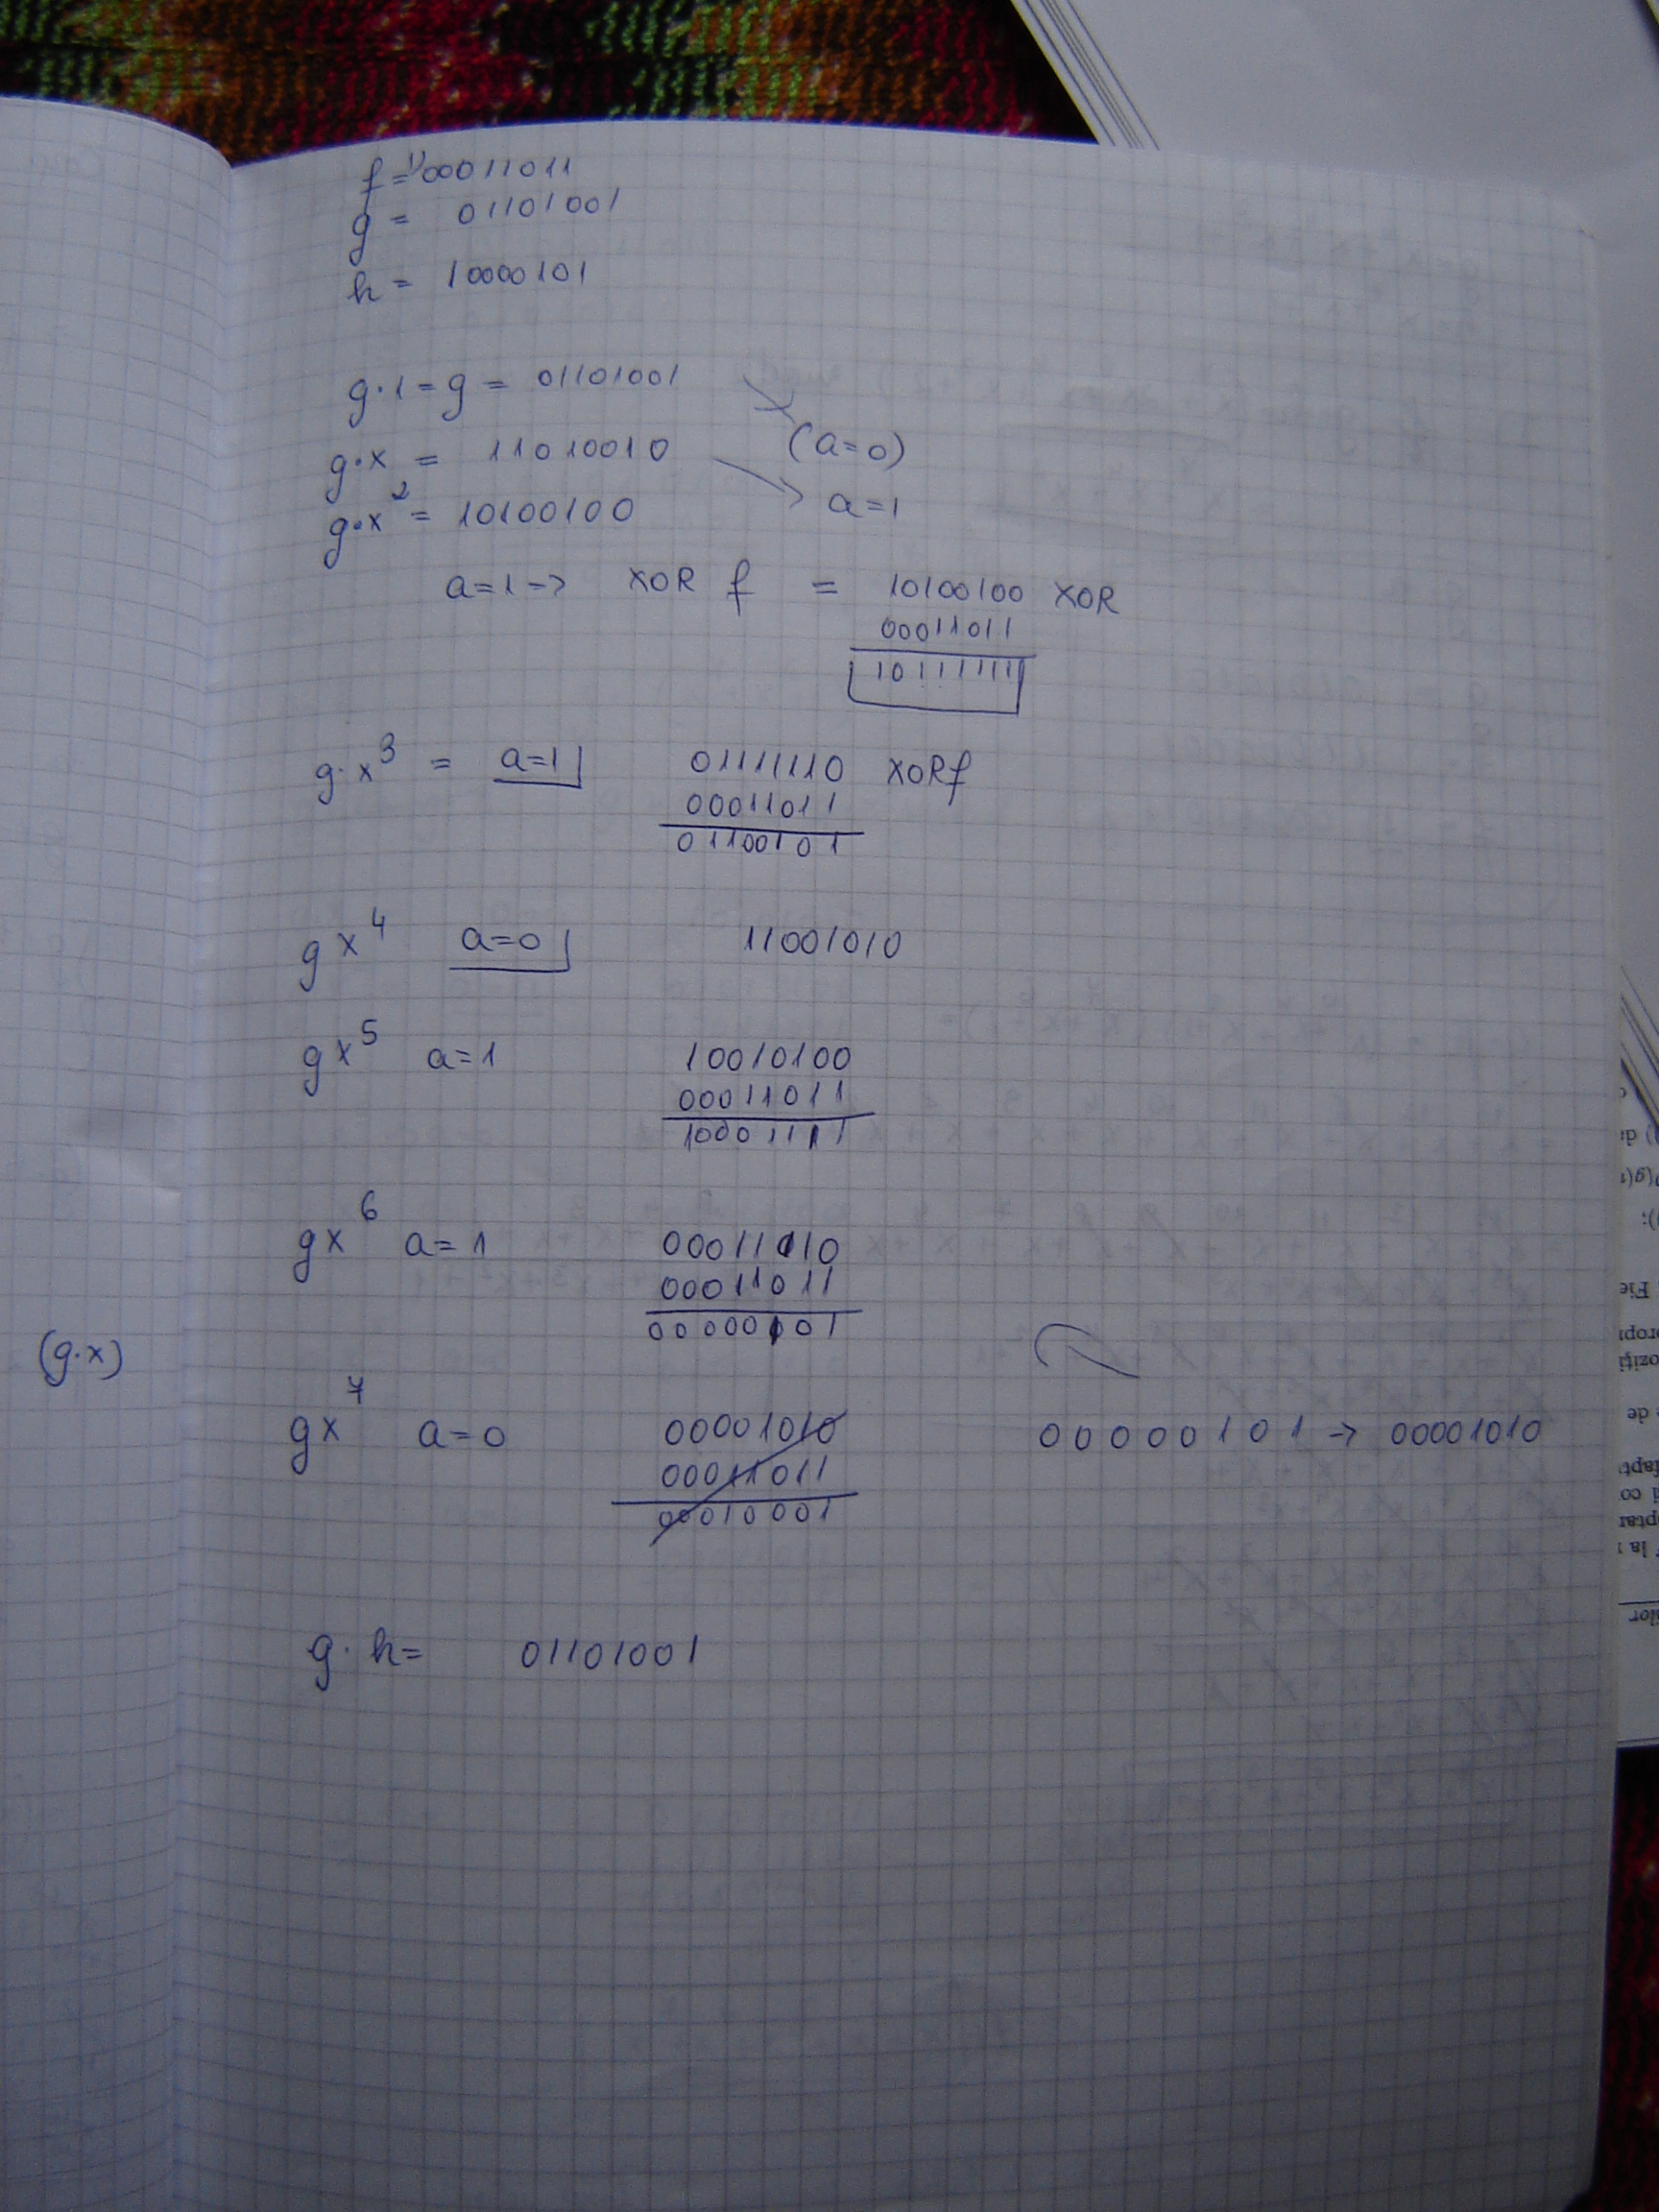 f = 1)00011011
g = 01101001
h = 10000101
g·1 = g = 01101001
(a=0)
g·x = 11010010
a=1
g·x² = 10100100
a=1 -> XOR f = 10100100 XOR
00011011
10111111
g·x³ = a=1 01111110 XOR f
00011011
01100101
gx⁴ a=0 11001010
gx⁵ a=1 10010100
00011011
10001111
gx⁶ a=1 00011110
00011011
00000101
(g·x)
gx⁷ a=0 00001010 00000101 -> 00001010
00011011
00010001
g·h= 01101001
Fie
de
la